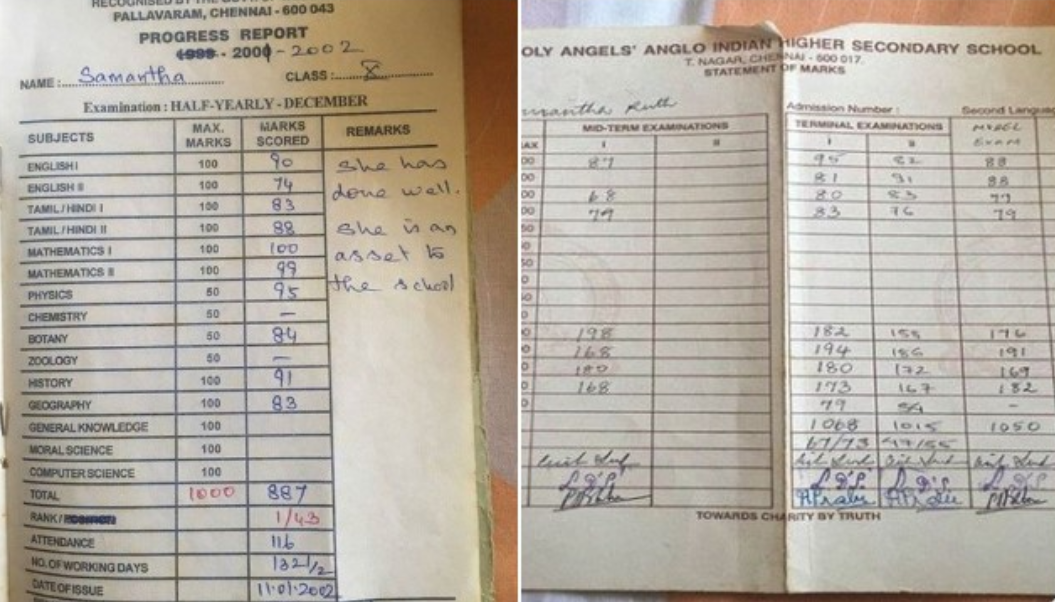 RECOGNISED BY THE GOVT. OF
PALLAVARAM, CHENNAI - 600 043
PROGRESS REPORT
1999 - 2000 - 2002
NAME : Samantha CLASS : X
Examination : HALF-YEARLY - DECEMBER
SUBJECTS MAX. MARKS MARKS SCORED REMARKS
ENGLISH I 100 90 She has
ENGLISH II 100 74 done well.
TAMIL / HINDI I 100 83
TAMIL / HINDI II 100 88 She is an
MATHEMATICS I 100 100 asset to
MATHEMATICS II 100 99 the school
PHYSICS 50 95
CHEMISTRY 50 —
BOTANY 50 84
ZOOLOGY 50 —
HISTORY 100 91
GEOGRAPHY 100 83
GENERAL KNOWLEDGE 100
MORAL SCIENCE 100
COMPUTER SCIENCE 100
TOTAL 1000 887
RANK / 1/43
ATTENDANCE 116
NO. OF WORKING DAYS 132 1/2
DATE OF ISSUE 11.01.2002
OLY ANGELS' ANGLO INDIAN HIGHER SECONDARY SCHOOL
T. NAGAR, CHENNAI - 600 017.
STATEMENT OF MARKS
mantha Ruth Admission Number : Second Langua
MID-TERM EXAMINATIONS TERMINAL EXAMINATIONS MODEL
AX I II I II EXAM
00 87 95 82 88
00 81 91 88
00 68 80 83 77
00 79 83 76 79
50
50
50
198 182 155 176
168 194 186 191
180 180 172 169
168 173 167 182
79 54 -
1068 1015 1050
67/73 47/55
TOWARDS CHARITY BY TRUTH